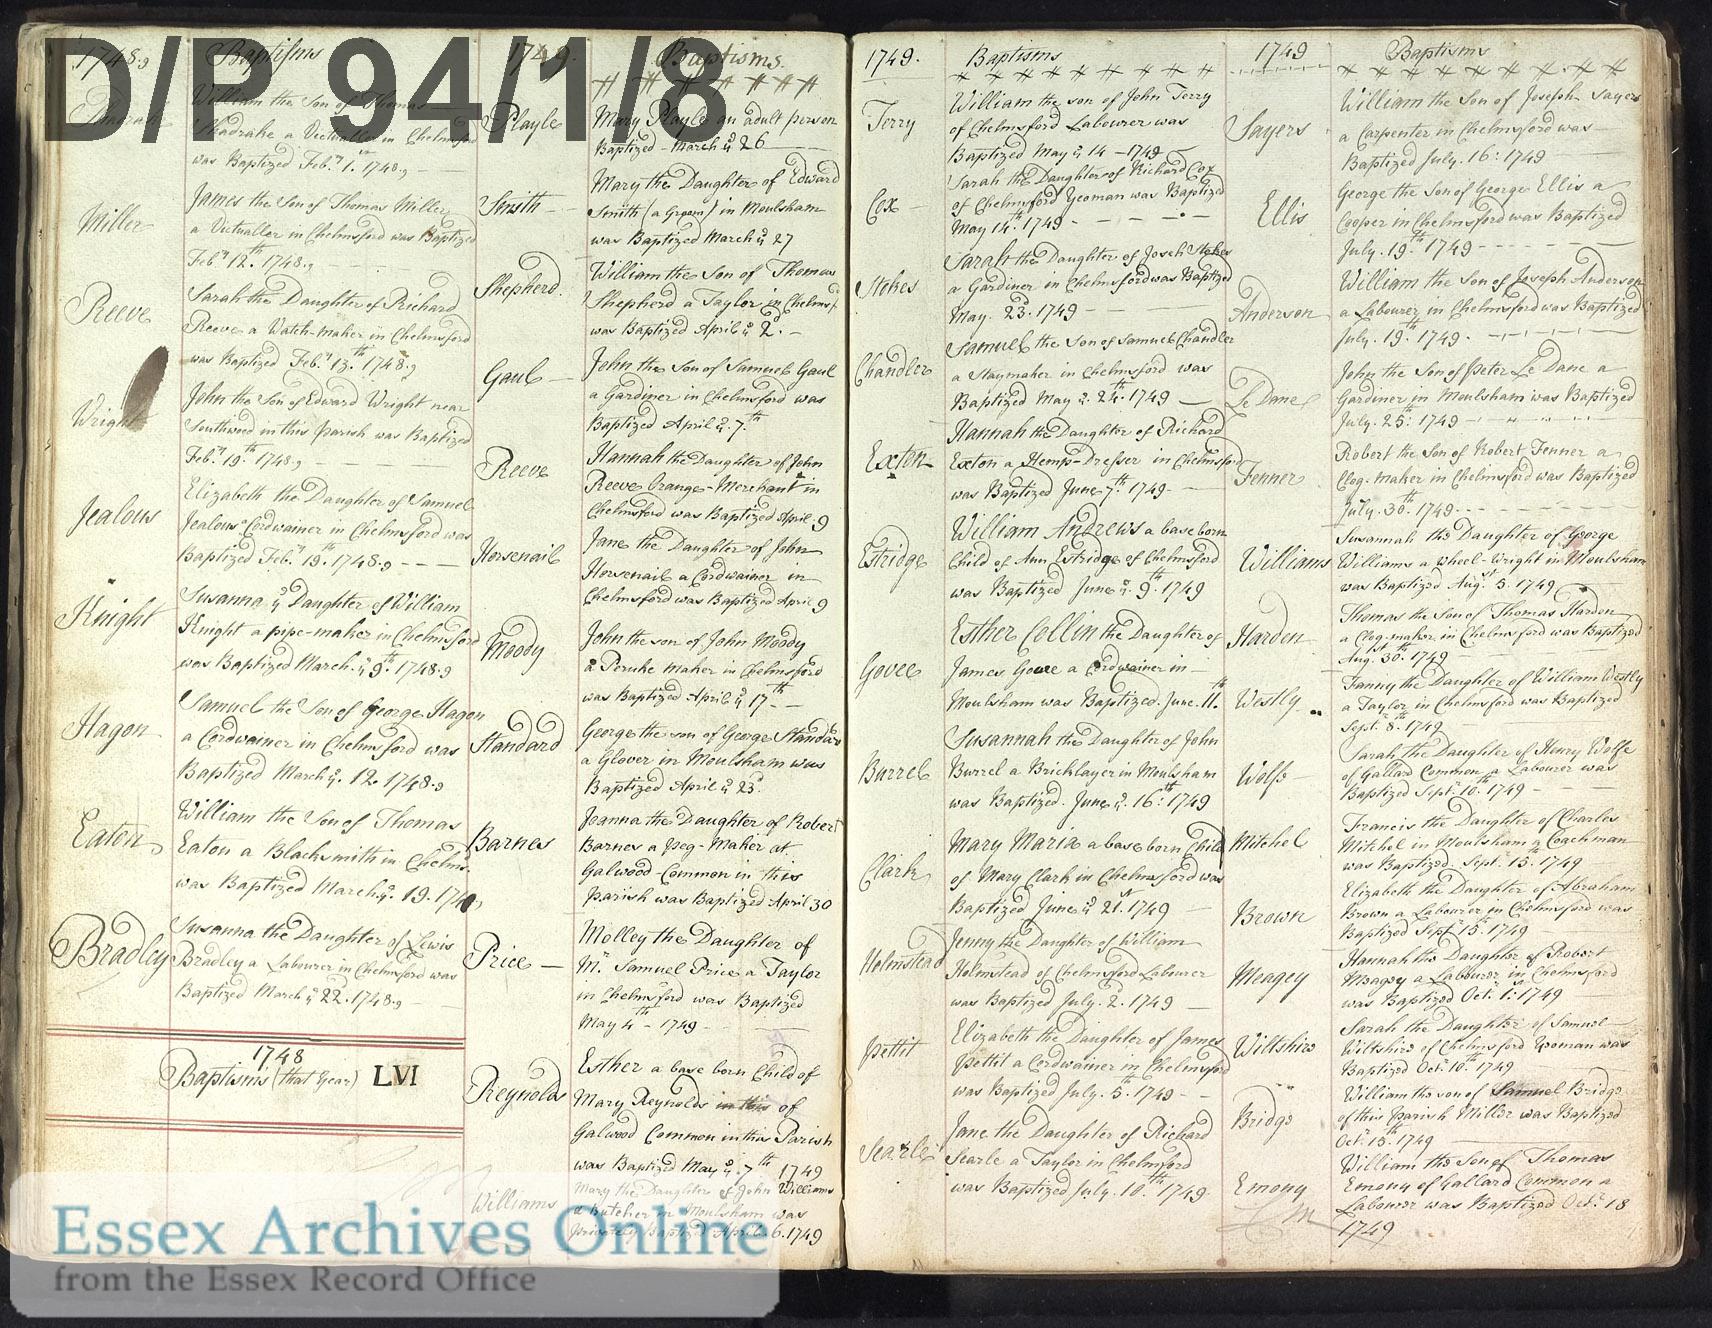 D/P 94/1/8
1748.9 Baptisms
Shadrake
William the Son of Thomas
Shadrake a Victualler in Chelmsford
was Baptized Feb.ry 1. 1748.9
Miller
James the Son of Thomas Miller
a Victualler in Chelmsford was Baptized
Feb.ry 12.th 1748.9
Reeve
Sarah the Daughter of Richard
Reeve a Watch-maker in Chelmsford
was Baptized Feb.ry 13.th 1748.9
Wright
John the Son of Edward Wright near
Southwood in this parish was Baptized
Feb.ry 19.th 1748.9
Jealous
Elizabeth the Daughter of Samuel
Jealous Cordwainer in Chelmsford was
Baptized Feb.ry 19.th 1748.9
Knight
Susanna ye Daughter of William
Knight a pipe-maker in Chelmsford
was Baptized March. ye 9.th 1748.9
Hagon
Samuel the Son of George Hagon
a Cordwainer in Chelmsford was
Baptized March ye. 12. 1748.9
Eaton
William the Son of Thomas
Eaton a Blacksmith in Chelms.
was Baptized March ye. 19. 1748.9
Bradley
Susanna the Daughter of Lewis
Bradley a Labourer in Chelmsford was
Baptized March ye 22. 1748.9
1748
Baptisms (that Year) LVI
1749. Baptisms.
Playle
Mary Playle an adult person
Baptized - March ye 26
Smith
Mary the Daughter of Edward
Smith (a Groom) in Moulsham
was Baptized March ye 27
Shepherd.
William the Son of Thomas
Shepherd a Taylor in Chelmsfd
was Baptized April ye 2d. -
Gaul
John the Son of Samuel Gaul
a Gardiner in Chelmsford was
Baptized April ye. 7.th
Reeve
Hannah the Daughter of John
Reeve Orange-Merchant in
Chelmsford was Baptized April. 9
Horsenail
Jane the Daughter of John
Horsenail a Cordwainer in
Chelmsford was Baptized April 9
Moody
John the son of John Moody
a Peruke maker in Chelmsford
was Baptized April ye 17th
Standard
George the son of George Standard
a Glover in Moulsham was
Baptized April ye 23d.
Barnes
Joanna the Daughter of Robert
Barnes a Peg-Maker at
Galwood-Common in this
parish was Baptized April 30
Price
Molley the Daughter of
Mr. Samuel Price a Taylor
in Chelmsford was Baptized
May 4th - 1749 -
Reynolds
Esther a base born Child of
Mary Reynolds in this of
Galwood Common in this Parish
was Baptized May ye. 7th 1749
Williams
Mary the Daughter of John Williams
a Butcher in Moulsham was
privately Baptized April. 6. 1749
1749. Baptisms
Terry
William the son of John Terry
of Chelmsford Labourer was
Baptized May ye 14 - 1749
Cox
Sarah the Daughter of Richard Cox
of Chelmsford Yeoman was Baptized
May 14th. 1749
Stokes
Sarah the Daughter of Joseh Stokes
a Gardiner in Chelmsford was Baptized
May. 23d. 1749
Chandler
Samuel the Son of Samuel Chandler
a Staymaker in Chelmsford was
Baptized May ye. 24.th 1749
Exton
Hannah the Daughter of Richard
Exton a Hemp-Dresser in Chelmsford
was Baptized June 7th. 1749
Estridge
William Andrews a base born
Child of Ann Estridge of Chelmsford
was Baptized June ye. 9.th 1749
Govee
Esther Collin the Daughter of
James Govee a Cordwainer in
Moulsham was Baptized. June. 11.th
Burrel
Susannah the Daughter of John
Burrel a Bricklayer in Moulsham
was Baptized. June ye. 16.th 1749
Clark
Mary Maria a base born Child
of Mary Clark in Chelmsford was
Baptized June ye 21.st 1749
Holmstead
Jenny the Daughter of William
Holmstead of Chelmsford Labourer
was Baptized July. 2. 1749
Pettit
Elizabeth the Daughter of James
Pettit a Cordwainer in Chelmsford
was Baptized July. 5.th 1749
Searle
Jane the Daughter of Richard
Searle a Taylor in Chelmsford
was Baptized July. 10.th 1749
1749 Baptisms
Sayers
William the Son of Joseph Sayers
a Carpenter in Chelmsford was
Baptized July. 16: 1749
Ellis
George the Son of George Ellis a
Cooper in Chelmsford was Baptized
July. 19.th 1749
Anderson
William the Son of Joseph Anderson
a Labourer in Chelmsford was Baptized
July. 19.th 1749
Le Dane
John the Son of Peter Le Dane a
Gardiner in Moulsham was Baptized
July. 25.th 1749
Fenner
Robert the Son of Robert Fenner a
Clog-maker in Chelmsford was Baptized
July. 30.th 1749
Williams
Susannah the Daughter of George
Williams a Wheel-Wright in Moulsham
was Baptized Augst. 5. 1749
Harden
Thomas the Son of Thomas Harden
a Clog-maker in Chelmsford was Baptized
Augst. 30.th 1749
Westly
Fanny the Daughter of William Westly
a Taylor in Chelmsford was Baptized
Sept.r 8.th 1749
Wolfe
Sarah the Daughter of Henry Wolfe
of Gallard Common a Labourer was
Baptized Sept.r 10.th 1749
Mitchel
Francis the Daughter of Charles
Mitchel in Moulsham a Coachman
was Baptized. Sept.r 15.th 1749
Brown
Elizabeth the Daughter of Abraham
Brown a Labourer in Chelmsford was
Baptized Sept.r 15.th 1749
Meagey
Hannah the Daughter of Robert
Meagey a Labourer in Chelmsford
was Baptized Oct.r 1.st 1749
Wiltshire
Sarah the Daughter of Samuel
Wiltshire of Chelmsford Yeoman was
Baptized Oct.r 10.th 1749
Bridge
William the son of Samuel Bridge
of this Parish Miller was Baptized
Oct.r 15.th 1749
Emony
William the Son of Thomas
Emony of Gallard Common a
Labourer was Baptized Oct.r 18
1749
Essex Archives Online
from the Essex Record Office